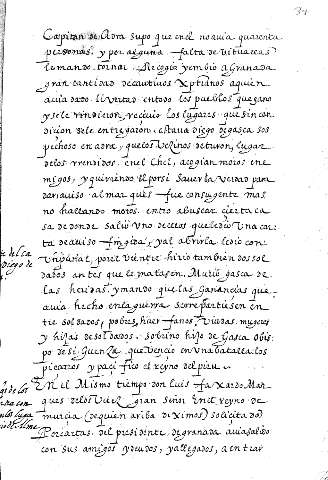 34
Capitan de Adra supo que en el no auia quarenta
personas, y por alguna falta de vituallas
le mando tornar. Recogio y embio a Granada
gran cantidad de cautiuos Xptianos a quien
auia dado liuertad en todos los pueblos que gano
y se le rindieron, reciuio los lugares que sin con
dicion se le entregaron. estaua diego de gasca sos
pechoso en adra, que los vezinos de turon, lugar
de los rrendidos en el Chel, acogian moros ene
migos, y quiriendo el por si sauer la verdad para
dar auiso al marques fue con su gente mas
no hallando moros entro a buscar cierta ca
sa de donde salio vno de ellos que le dio vna car
ta de auiso fingida, y al abrirla le dio con
vn puñal, por el vientre hirio tambien dos sol
dados antes que le matasen. Murio gasca de
las heridas, y mando que las ganancias que
auia hecho en la guerra se rrepartiesen en
tre soldados, pobres, huerfanos, viudas, mugeres
y hijas de soldados. sobrino hijo de Gasca obis
po de siguenza que vencio en vna batalla los
picarros y pacifico el reyno del piru
En el Mismo tiempo don luis faxardo Mar
ques de los Velez gran señor En el reyno de
murcia (de quien ariba diximos) solicitado
Por cartas del presidente de granada auia salido
con sus amigos y deudos, y allegados, a entrar